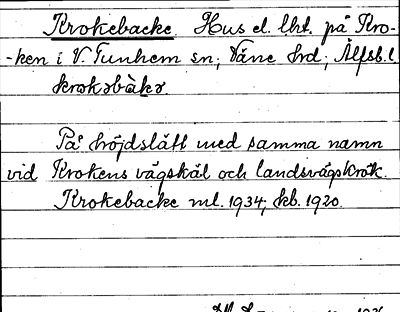 Krokebacke. Hus el. lht. på Kro-
-ken i V. Tunhem sn; Väne hd; Älfsb. l.
krokəbàkə.
På höjdslätt med samma namn
vid Krokens vägskäl och landsvägskrök.
Krokebacke ml. 1934; kb. 1920.